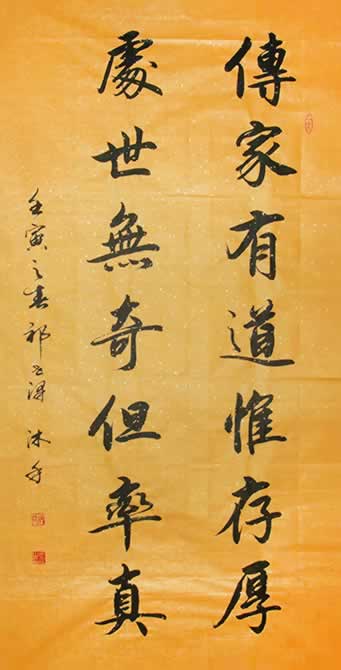 傳家有道惟存厚
處世無奇但率真
壬寅之春祁玉得沐手